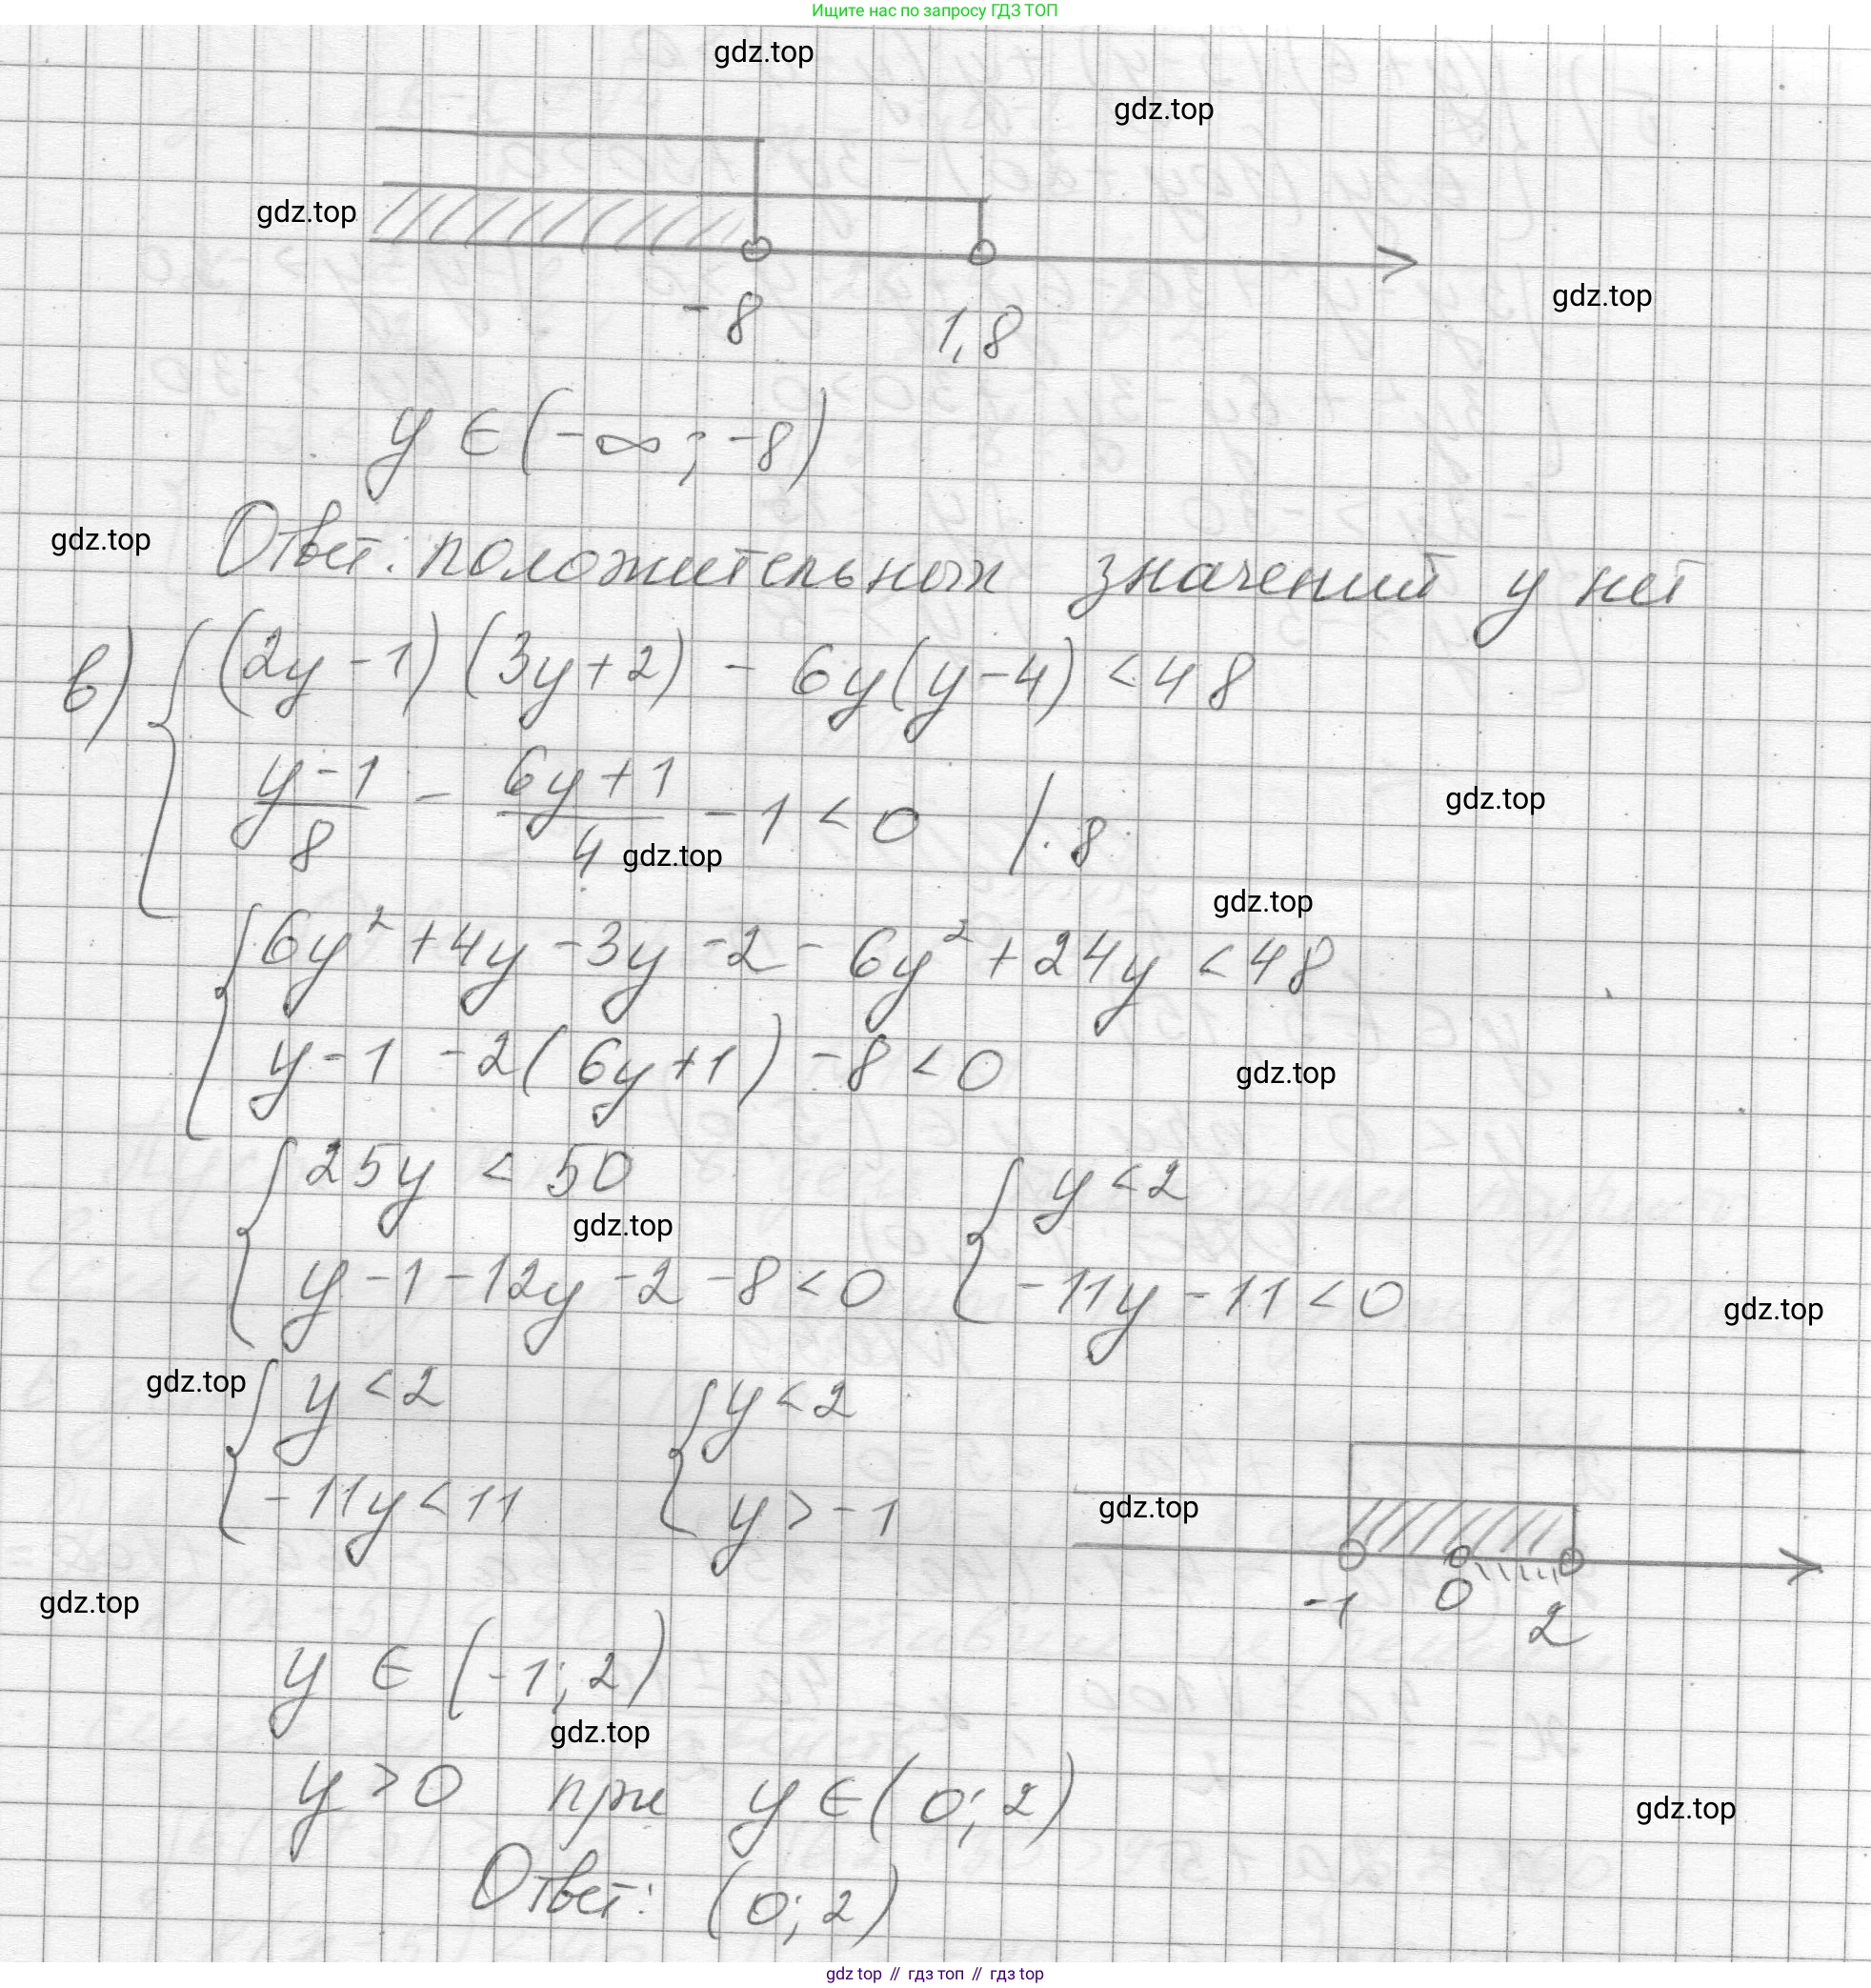 Ищите нас по запросу ГДЗ ТОП
gdz.top
gdz.top
gdz.top
gdz.top
-8 1,8
y ∈ (-∞; -8)
gdz.top
Ответ: положительных значений y нет
в) { (2y - 1)(3y + 2) - 6y(y - 4) < 48
(y - 1)/8 - (6y + 1)/4 - 1 < 0 | · 8
gdz.top
gdz.top
gdz.top
{ 6y² + 4y - 3y - 2 - 6y² + 24y < 48
y - 1 - 2(6y + 1) - 8 < 0
gdz.top
{ 25y < 50 { y < 2
gdz.top
y - 1 - 12y - 2 - 8 < 0 -11y - 11 < 0
gdz.top
gdz.top
{ y < 2 { y < 2
-11y < 11 y > -1
gdz.top
-1 0 2
gdz.top
y ∈ (-1; 2)
gdz.top
y > 0 при y ∈ (0; 2)
gdz.top
Ответ: (0; 2)
gdz top // гдз топ // гдз top